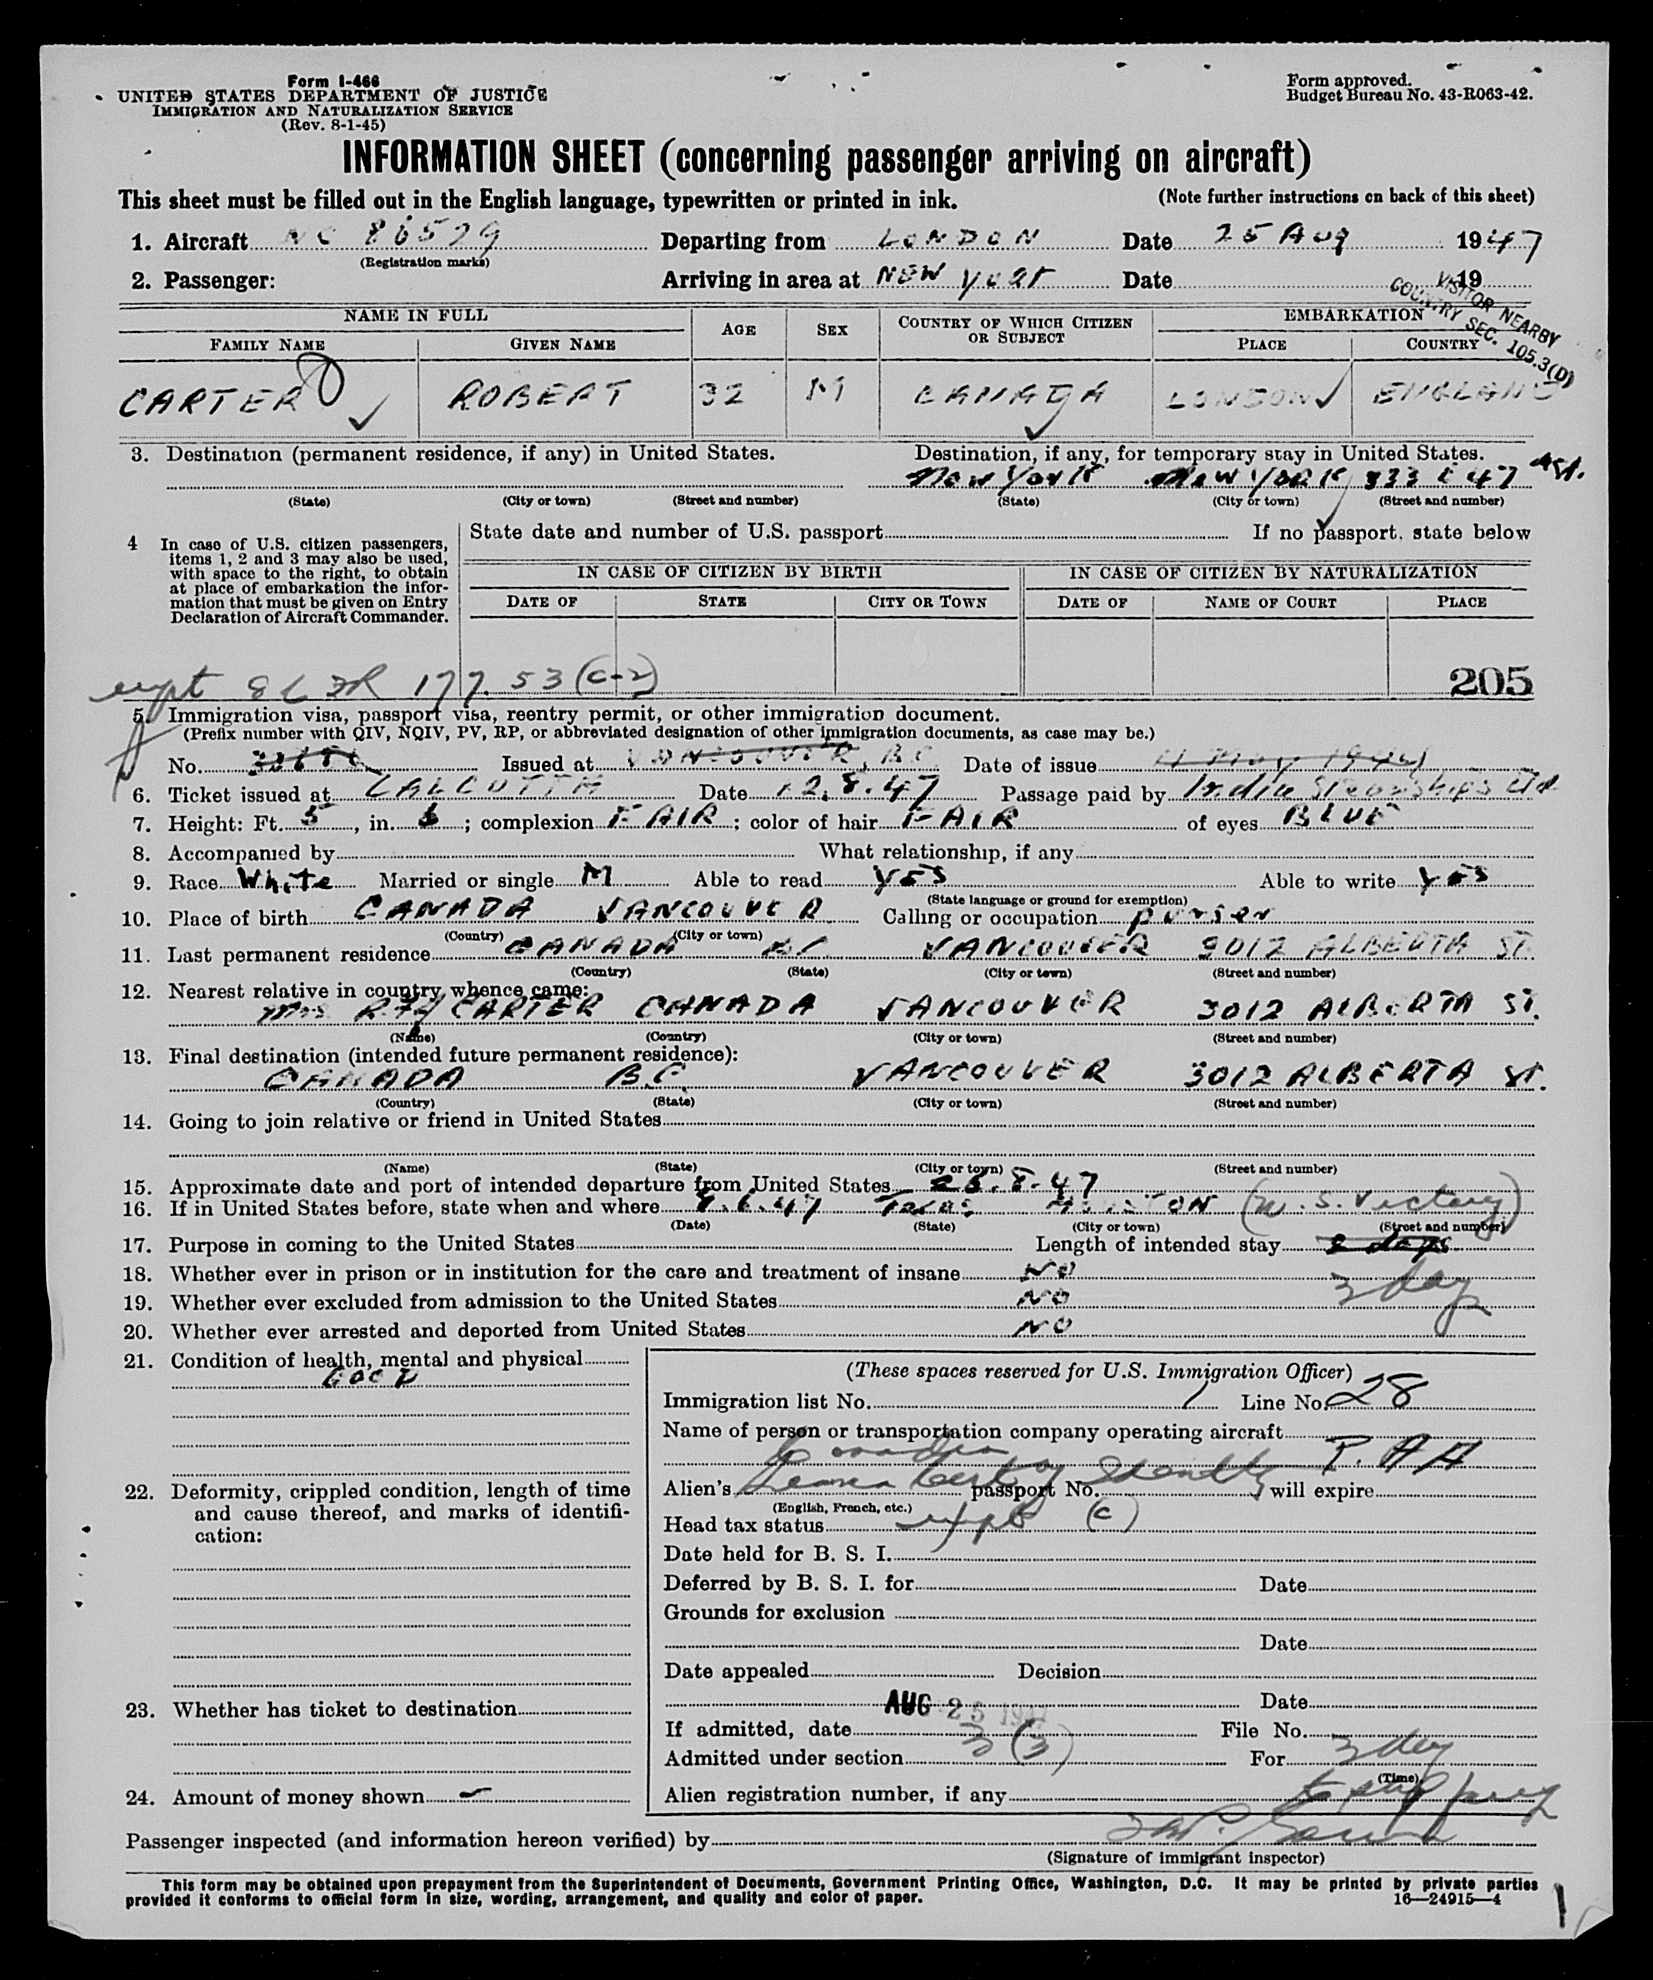 Form I-466
UNITED STATES DEPARTMENT OF JUSTICE
IMMIGRATION AND NATURALIZATION SERVICE
(Rev. 8-1-45)
Form approved.
Budget Bureau No. 43-R063-42.
INFORMATION SHEET (concerning passenger arriving on aircraft)
This sheet must be filled out in the English language, typewritten or printed in ink. (Note further instructions on back of this sheet)
1. Aircraft NC 86529 Departing from LONDON Date 25 AUG 1947
(Registration marks)
2. Passenger: Arriving in area at NEW YORK Date 19
VISITOR NEARBY
COUNTRY SEC. 105.3(D)
NAME IN FULL AGE SEX COUNTRY OF WHICH CITIZEN OR SUBJECT EMBARKATION
FAMILY NAME GIVEN NAME PLACE COUNTRY
CARTER ROBERT 32 M CANADA LONDON ENGLAND
3. Destination (permanent residence, if any) in United States. Destination, if any, for temporary stay in United States.
New York New YORK 333 E 47 st.
(State) (City or town) (Street and number) (State) (City or town) (Street and number)
4 In case of U.S. citizen passengers, items 1, 2 and 3 may also be used, with space to the right, to obtain at place of embarkation the information that must be given on Entry Declaration of Aircraft Commander.
State date and number of U.S. passport If no passport, state below
IN CASE OF CITIZEN BY BIRTH IN CASE OF CITIZEN BY NATURALIZATION
DATE OF STATE CITY OR TOWN DATE OF NAME OF COURT PLACE
177.53 (c-2) 205
5. Immigration visa, passport visa, reentry permit, or other immigration document.
(Prefix number with QIV, NQIV, PV, RP, or abbreviated designation of other immigration documents, as case may be.)
No. Issued at VANCOUVER, B.C. Date of issue
6. Ticket issued at CALCUTTA Date 12.8.47 Passage paid by India Steamships Ltd
7. Height: Ft. 5, in. 6; complexion FAIR; color of hair FAIR of eyes BLUE
8. Accompanied by What relationship, if any
9. Race White Married or single M Able to read YES Able to write YES
(State language or ground for exemption)
10. Place of birth CANADA VANCOUVER Calling or occupation purser
(Country) (City or town)
11. Last permanent residence CANADA BC VANCOUVER 3012 ALBERTA ST.
(Country) (State) (City or town) (Street and number)
12. Nearest relative in country whence came:
Mrs RAY CARTER CANADA VANCOUVER 3012 ALBERTA ST.
(Name) (Country) (City or town) (Street and number)
13. Final destination (intended future permanent residence):
CANADA B.C. VANCOUVER 3012 ALBERTA ST.
(Country) (State) (City or town) (Street and number)
14. Going to join relative or friend in United States
(Name) (State) (City or town) (Street and number)
15. Approximate date and port of intended departure from United States 28.8.47
16. If in United States before, state when and where 9.6.47 Texas HOUSTON
(Date) (State) (City or town) (Street and number)
17. Purpose in coming to the United States Length of intended stay days
3 day
18. Whether ever in prison or in institution for the care and treatment of insane NO
19. Whether ever excluded from admission to the United States NO
20. Whether ever arrested and deported from United States NO
21. Condition of health, mental and physical
GOOD
22. Deformity, crippled condition, length of time and cause thereof, and marks of identification:
23. Whether has ticket to destination
24. Amount of money shown —
(These spaces reserved for U.S. Immigration Officer)
Immigration list No. 1 Line No. 28
Name of person or transportation company operating aircraft
P.A.A
Canadian
Alien's passport No. will expire
(English, French, etc.)
Head tax status (c)
Date held for B. S. I.
Deferred by B. S. I. for Date
Grounds for exclusion
Date
Date appealed Decision
Date
If admitted, date AUG 25 1947 File No.
Admitted under section 3 (3) For 3 day
(Time)
Alien registration number, if any
Passenger inspected (and information hereon verified) by
(Signature of immigrant inspector)
This form may be obtained upon prepayment from the Superintendent of Documents, Government Printing Office, Washington, D.C. It may be printed by private parties
provided it conforms to official form in size, wording, arrangement, and quality and color of paper. 16—24915—4